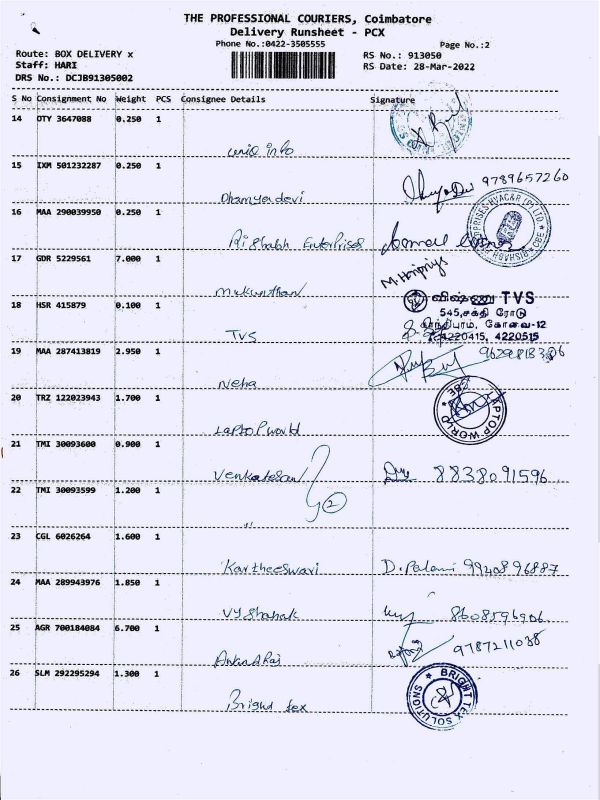 THE PROFESSIONAL COURIERS, Coimbatore
Delivery Runsheet - PCX
Phone No.:0422-3505555 Page No.:2
Route: BOX DELIVERY x RS No.: 913050
Staff: HARI RS Date: 28-Mar-2022
DRS No.: DCJB91305002
S No Consignment No Weight PCS Consignee Details Signature
14 OTY 3647088 0.250 1
uniq info
15 IXM 501232287 0.250 1
Dhamyadevi 9789657260
16 MAA 290039950 0.250 1
Rishabh Enterprises
RISHABH HVAC&R (P) LTD * CBE
17 GDR 5229561 7.000 1
M. Haripriya
Mukunthan
விஷ்ணு TVS
18 HSR 415879 0.100 1
545,சக்தி ரோடு
காந்திபுரம், கோவை-12
TVS
4220415, 4220515
19 MAA 287413819 2.950 1
Neha
20 TRZ 122023943 1.700 1
LAPTOP WORLD * CBE
Laptop world
21 TMI 30093600 0.900 1
Venkatesan 8838091596
22 TMI 30093599 1.200 1
2
"
23 CGL 6026264 1.600 1
Kartheeswari D. Palani 9940896887
24 MAA 289943976 1.850 1
8608596906
25 AGR 700184084 6.700 1
9787211038
Anandraj
26 SLM 292295294 1.300 1
BRIGHT TEX SOLUTIONS *
Bright tex